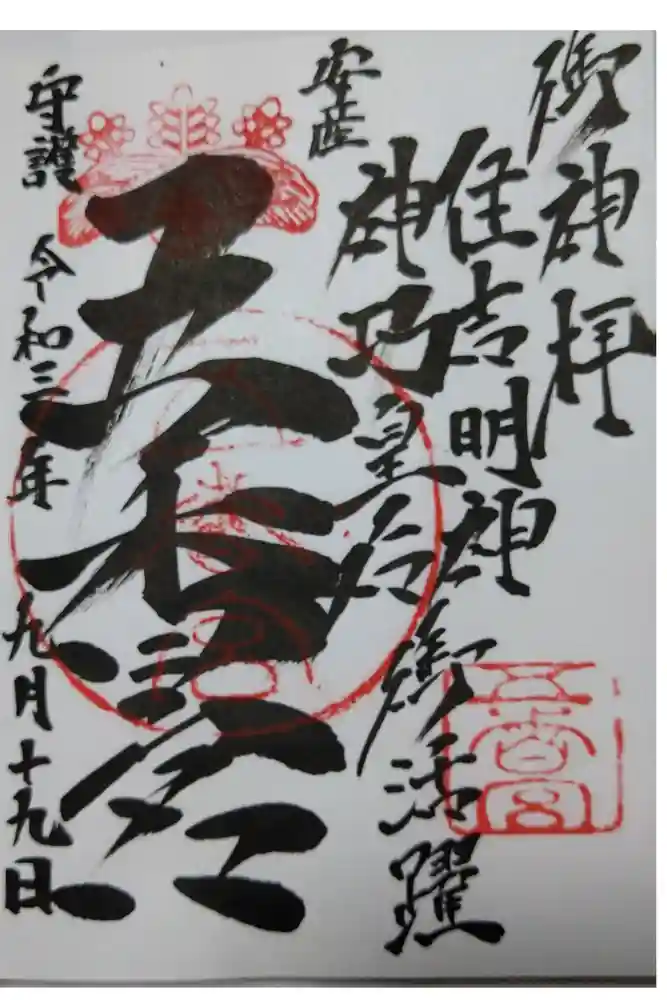 御神拝
住吉明神
神功皇后
御活躍
安産
五香宮
守護
令和三年 九月十九日
五香宮